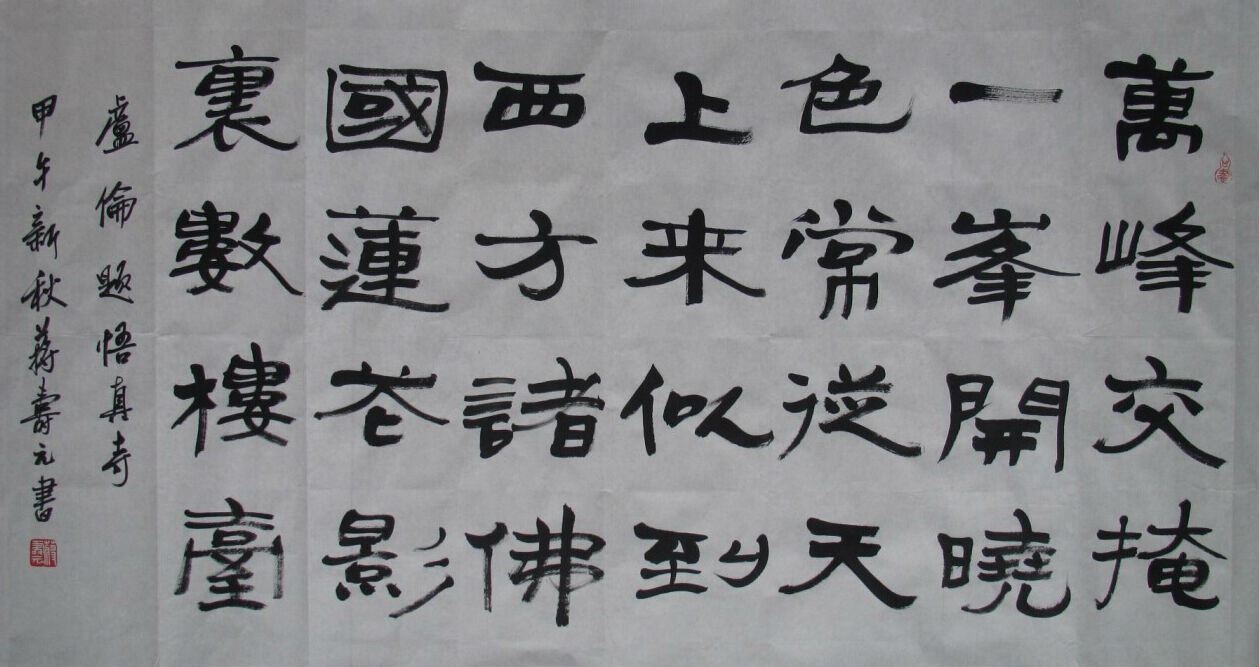 萬峰交掩
一峯開曉
色常從天
上来似到
西方諸佛
國蓮花影
裏數樓臺
盧倫题悟真寺
甲午新秋蔣壽元書